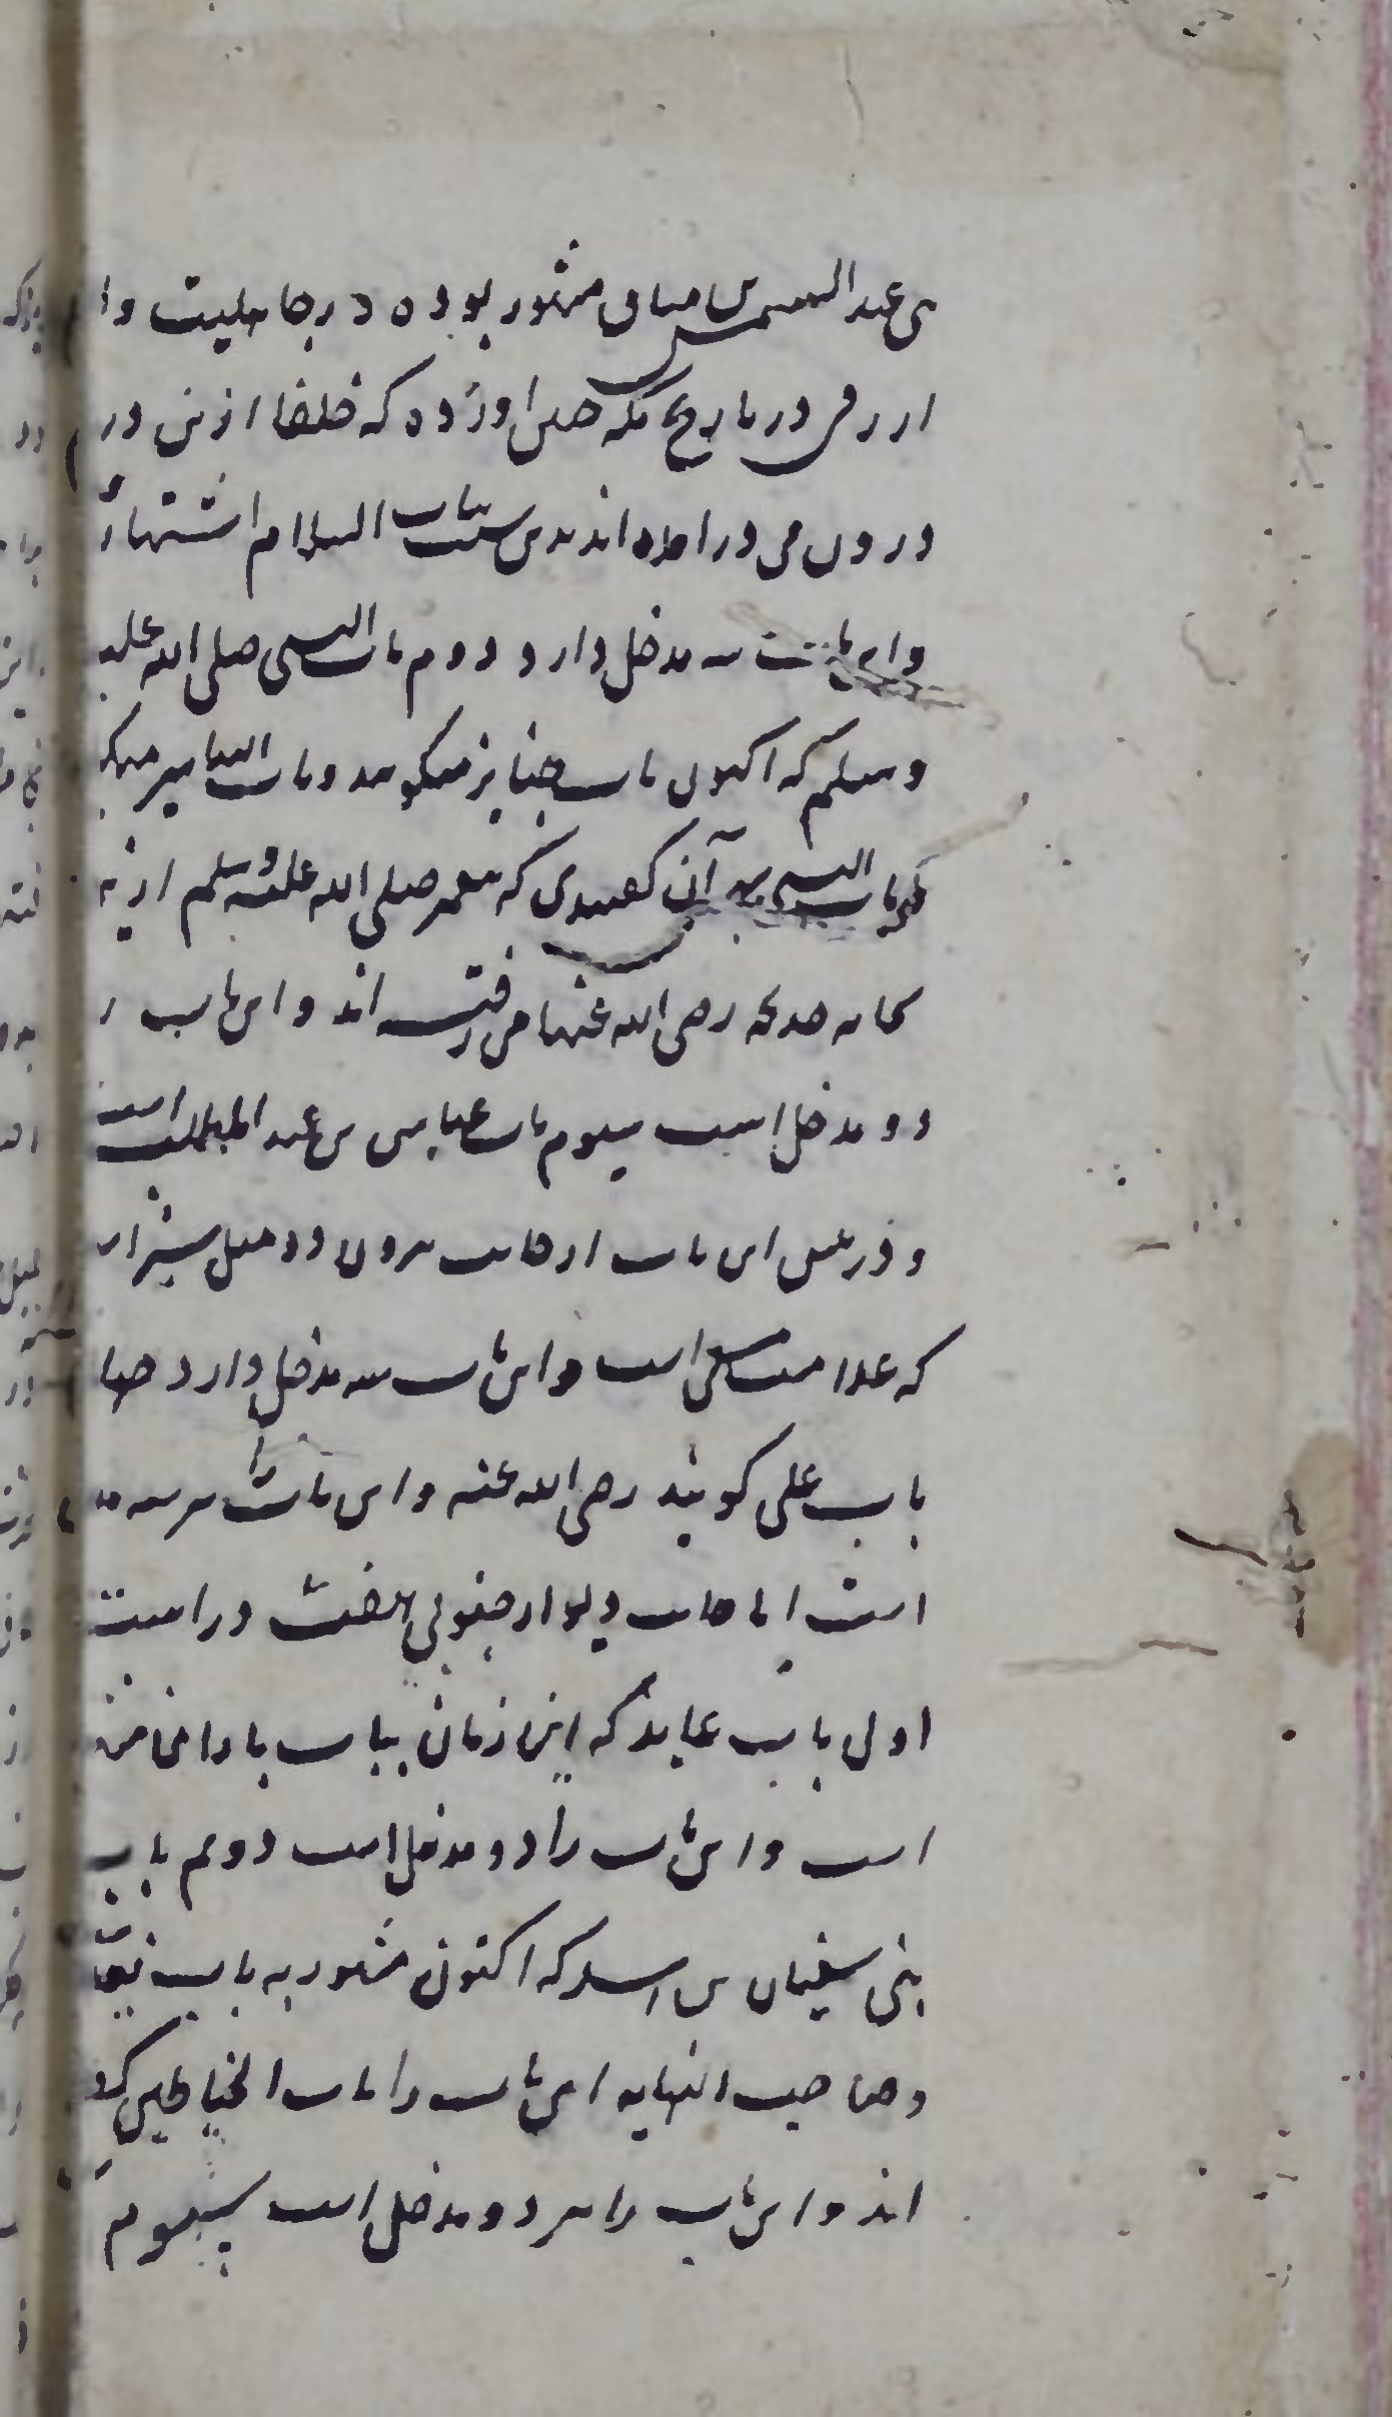 بن عبد الشمس بن مناف مشهور بوده در جاهلیت وا
ازرقی در تاریخ مکه چنین آورده که خلفا ازین در
درون می درامده اند بدین سبب بباب السلام اشتهار
واین باب سه مدخل دارد دوم باب النبی صلی الله علیه
وسلم که اکنون باب جنایز میکویند و باب النبی نیز میکو
باب النبی بر آن کفتندی که پیغمبر صلی الله علیه وسلم ازین
بخانه خدیجه رضی الله عنها می رفته اند و این باب ر
دو مدخل است سیوم باب عباس بن عبد المطلب است
و در پیش این باب از جانب بیرون دو میل سبز است
که علامت سعی است و این باب سه مدخل دارد چها
باب علی کویند رضی الله عنه و این باب را نیز سه مد
است اما جانب دیوار جنوبی هفت در است
اول باب عاید که این زمان بباب بازان
است و این باب را دو مدخل است دوم باب
بنی سفیان بن اسد که اکنون مشهور به باب
و صاحب النهایه این باب را باب الخیاطین کف
اند و این باب را نیز دو مدخل است سیوم